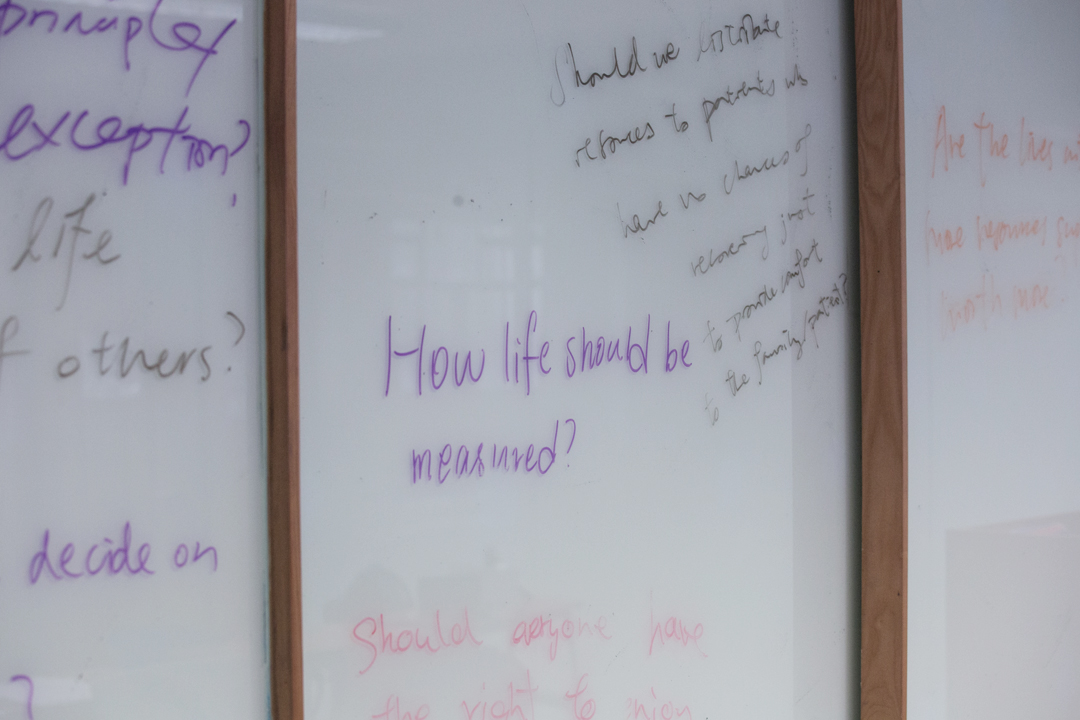 principles
exception?
life
of others?
decide on
?
Should we distribute
resources to patients who
have no chances of
recovering just
to provide comfort
to the family/patient?
How life should be
measured?
Should everyone have
the right to enjoy
Are the lives
have resources
worth more